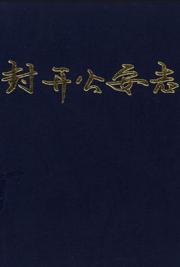 封开公安志